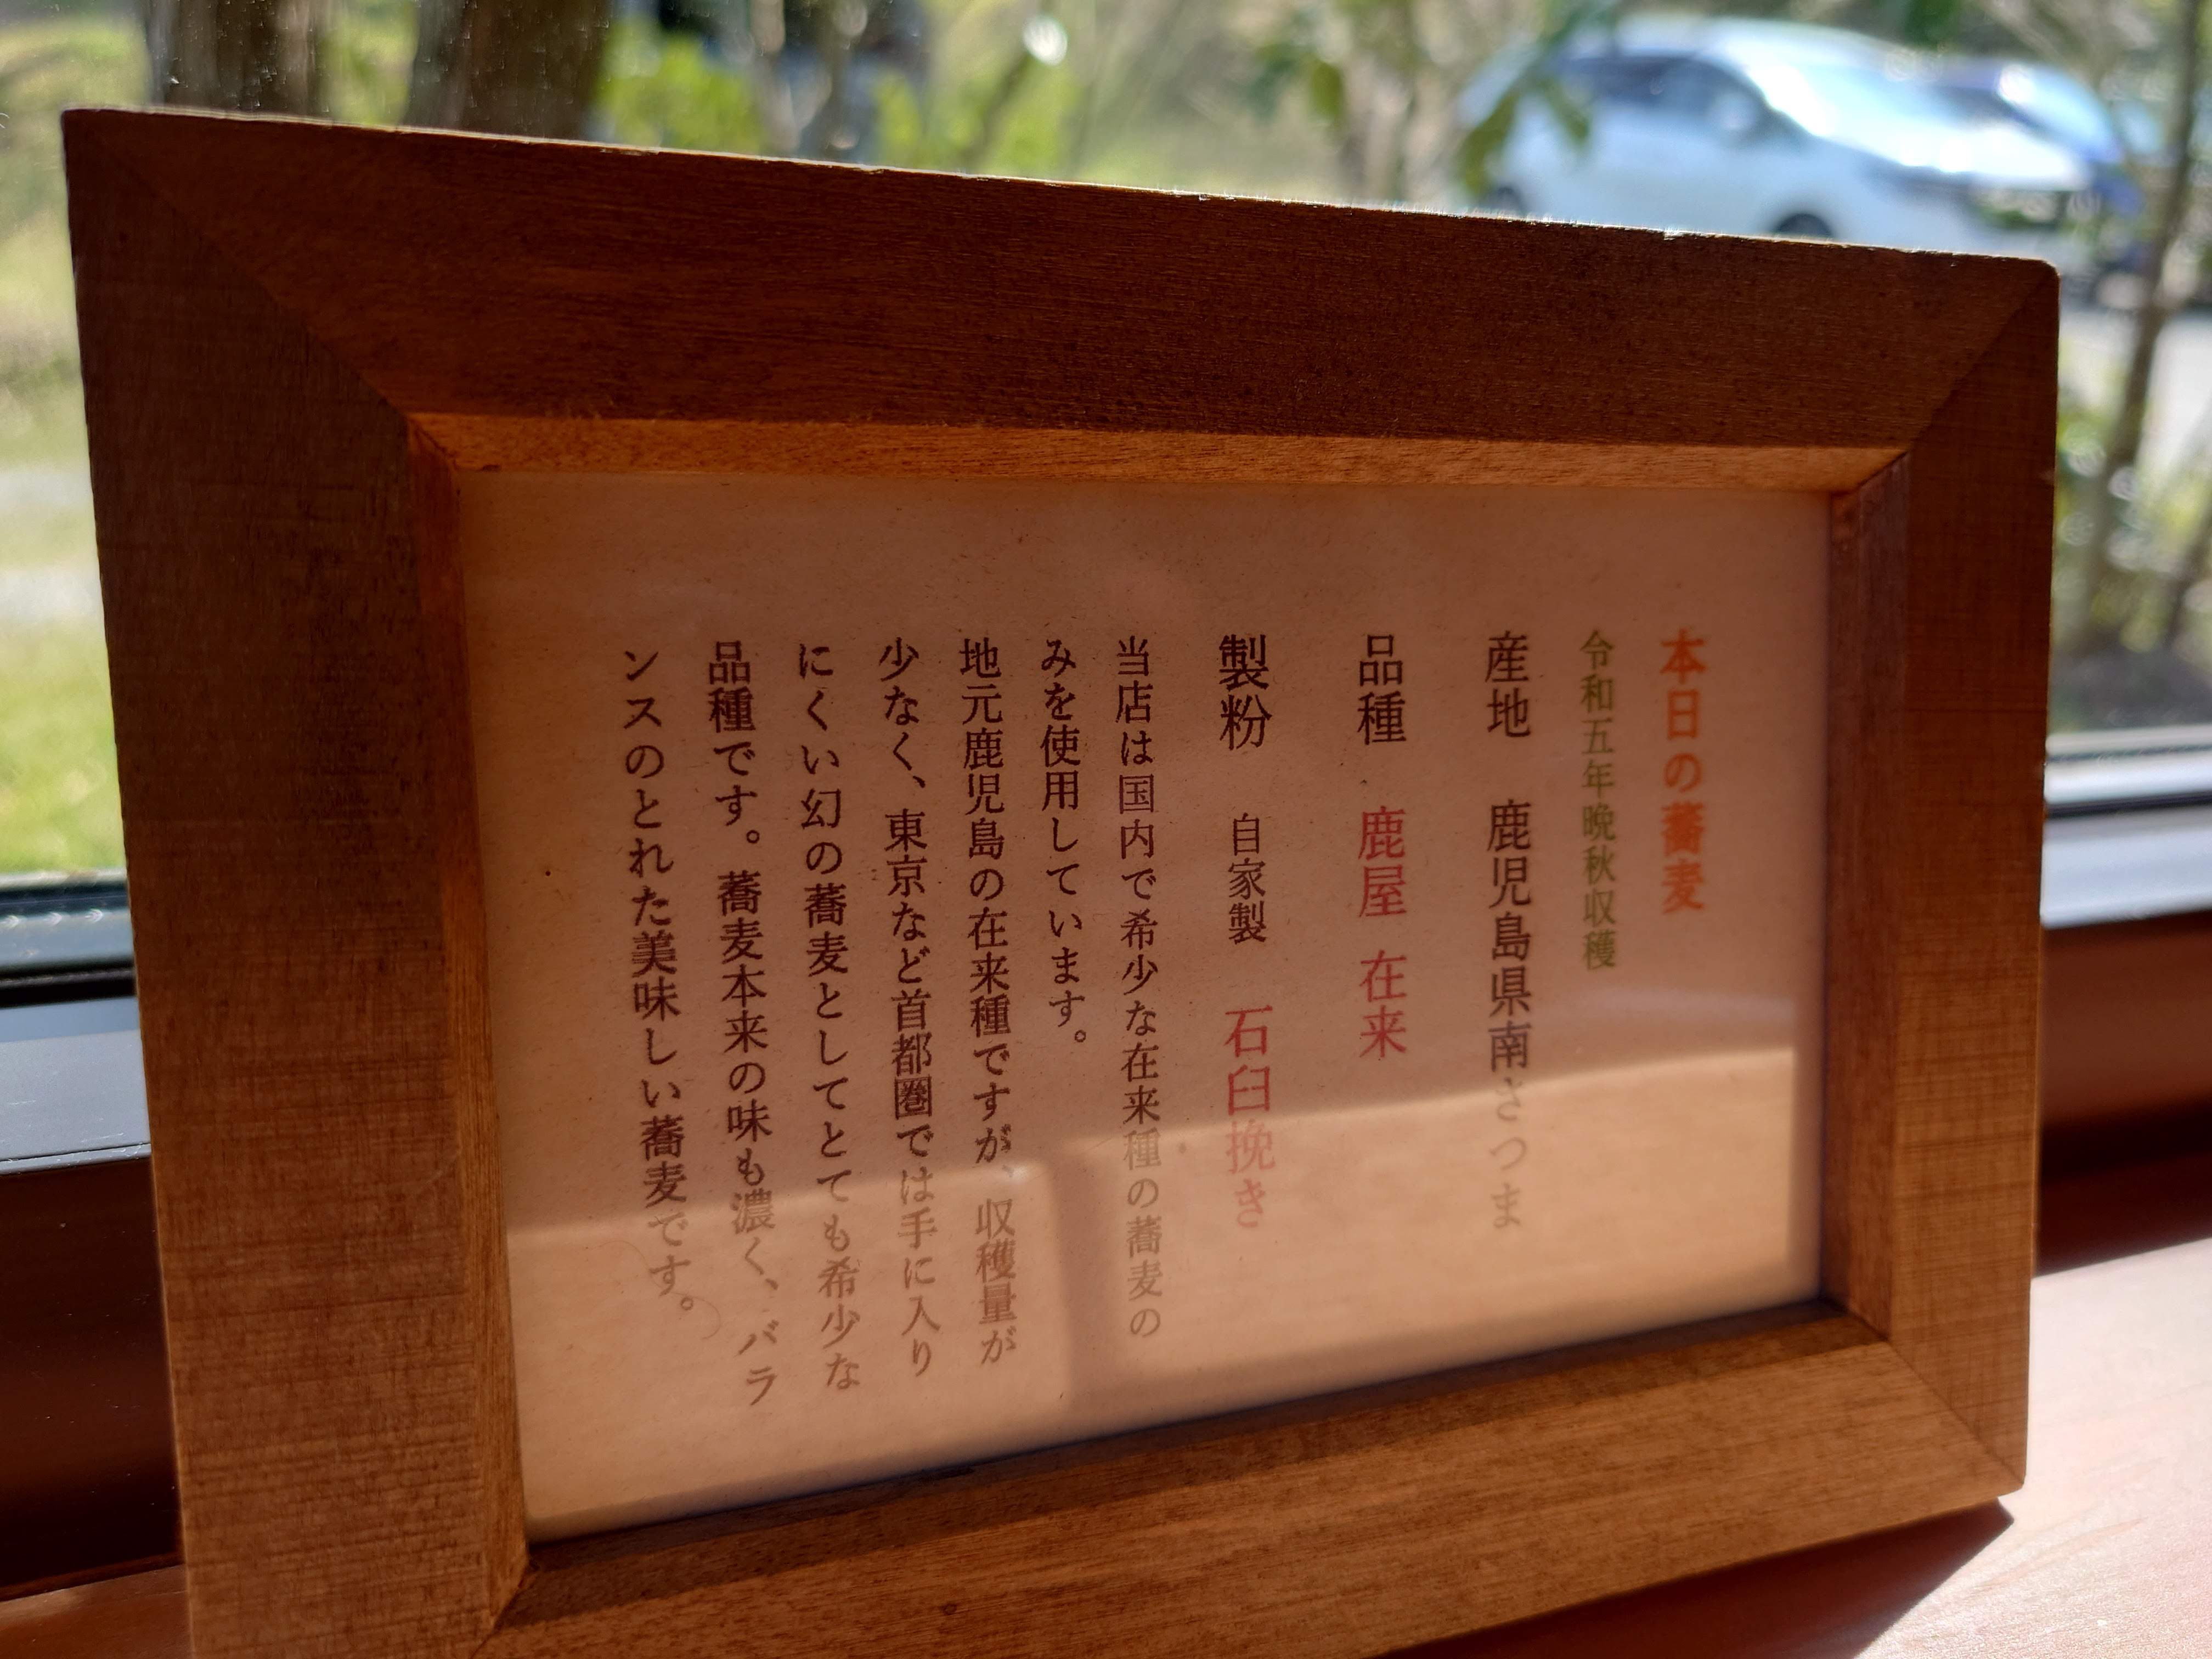 本日の蕎麦
令和五年晩秋収穫
産地　鹿児島県南さつま
品種　鹿屋 在来
製粉　自家製　石臼挽き
当店は国内で希少な在来種の蕎麦の
みを使用しています。
地元鹿児島の在来種ですが、収穫量が
少なく、東京など首都圏では手に入り
にくい幻の蕎麦としてとても希少な
品種です。蕎麦本来の味も濃く、バラ
ンスのとれた美味しい蕎麦です。